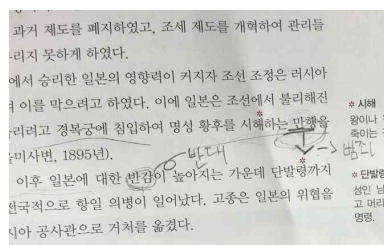 과거 제도를 폐지하였고, 조세 제도를 개혁하여 관리들
리지 못하게 하였다.
에서 승리한 일본의 영향력이 커지자 조선 조정은 러시아
이를 막으려고 하였다. 이에 일본은 조선에서 불리해진
리려고 경복궁에 침입하여 명성 황후를 시해하는 만행을
을미사변, 1895년).
반대
이후 일본에 대한 반감이 높아지는 가운데 단발령까지
전국적으로 항일 의병이 일어났다. 고종은 일본의 위협을
시아 공사관으로 거처를 옮겼다.
시해
왕이나
죽이는
범죄
단발령
성인 남
고 머리
명령.